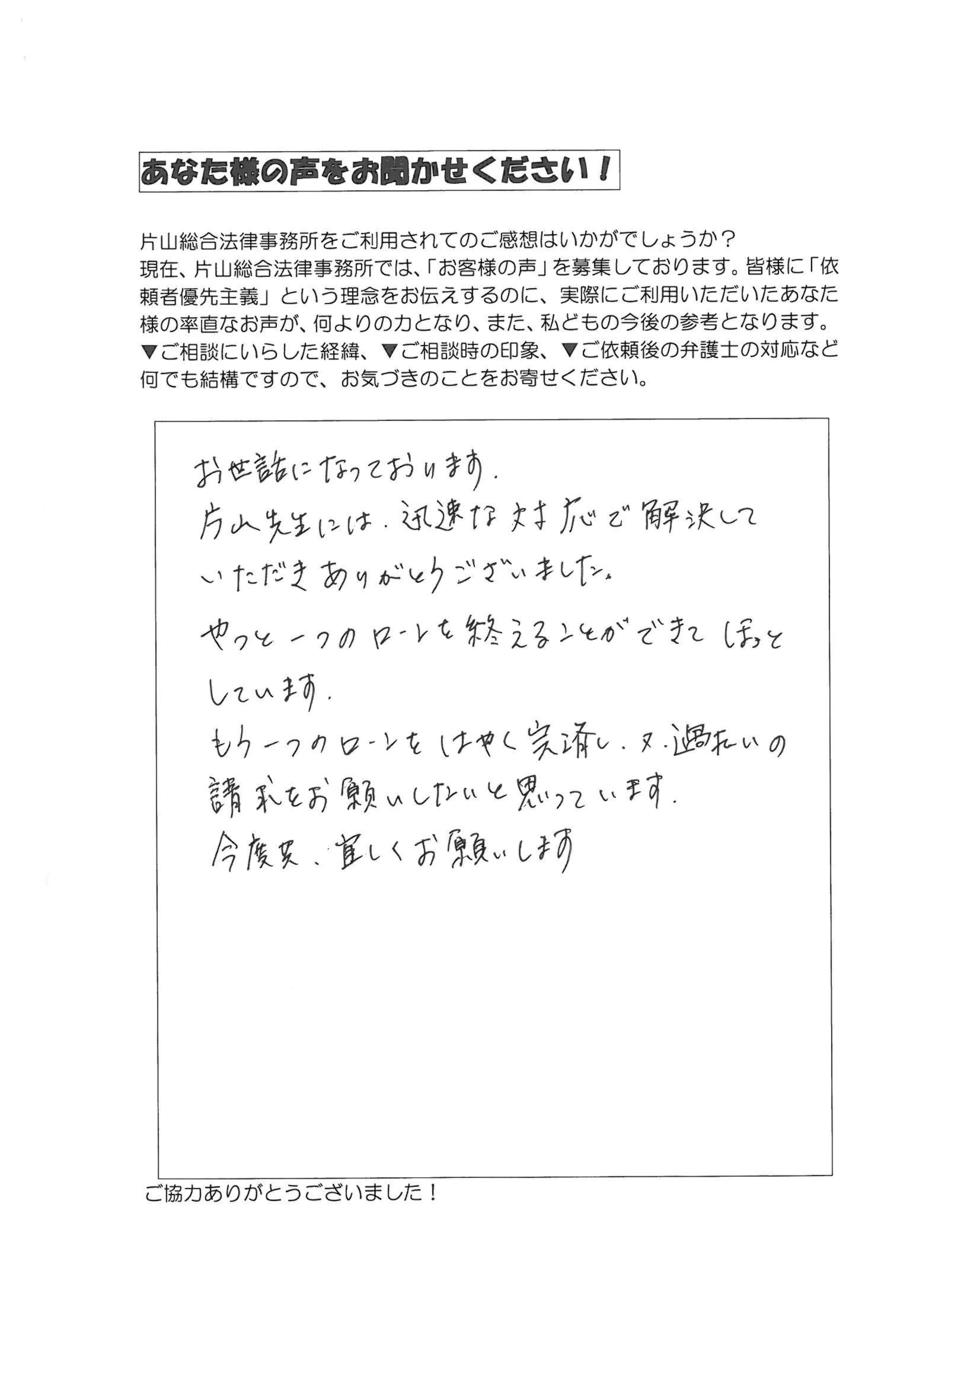 あなた様の声をお聞かせください！
片山総合法律事務所をご利用されてのご感想はいかがでしょうか？
現在、片山総合法律事務所では、「お客様の声」を募集しております。皆様に「依
頼者優先主義」という理念をお伝えするのに、実際にご利用いただいたあなた
様の率直なお声が、何よりの力となり、また、私どもの今後の参考となります。
▼ご相談にいらした経緯、▼ご相談時の印象、▼ご依頼後の弁護士の対応など
何でも結構ですので、お気づきのことをお寄せください。
お世話になっております.
片山先生には、迅速な対応で解決して
いただきありがとうございました。
やっと一つのローンを終えることができてほっと
しています.
もう一つのローンをはやく完済し、又、過払いの
請求をお願いしたいと思っています.
今度共、宜しくお願いします
ご協力ありがとうございました！